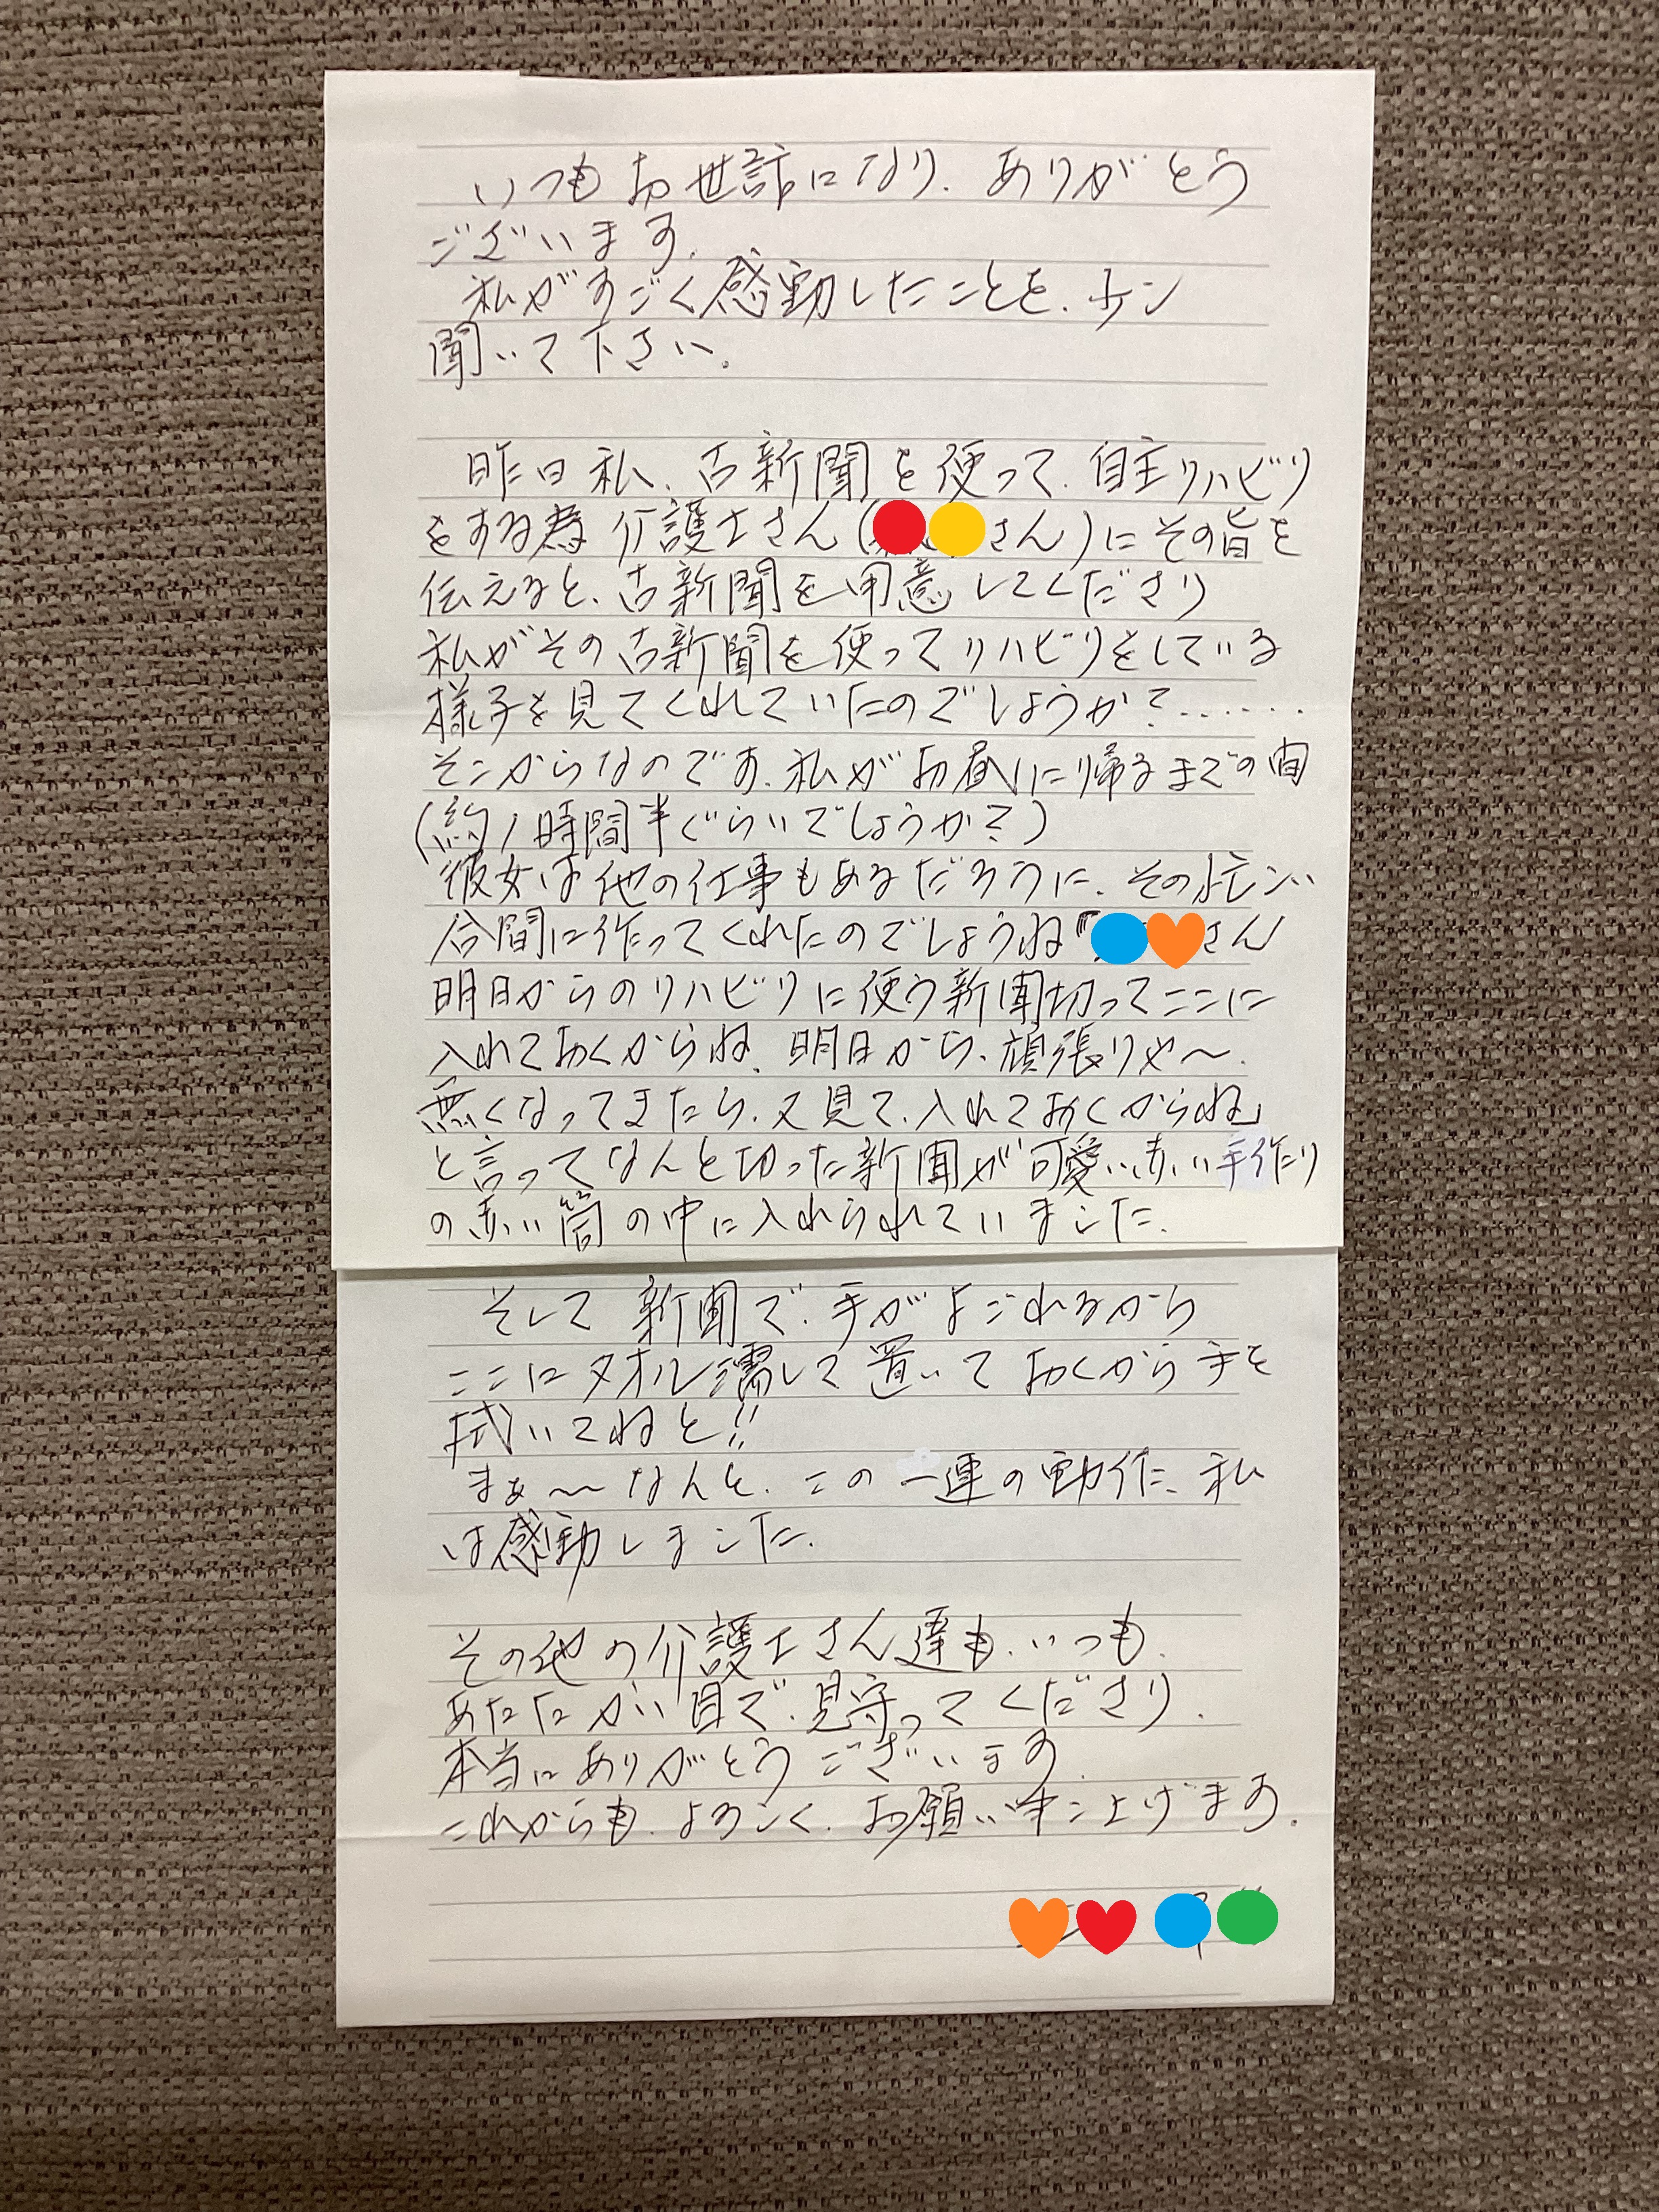 いつもお世話になり、ありがとう
ございます。
私がすごく感動したことを、少シ
聞いて下さい。
昨日私、古新聞を使って、自主リハビリ
をする為介護士さん(さん)にその旨を
伝えると、古新聞を用意してくださり
私がその古新聞を使ってリハビリをしている
様子を見てくれていたのでしょうか?......
そこからなのです。私がお昼に帰るまでの間
(約1時間半ぐらいでしょうか?)
彼女は他の仕事もあるだろうに、その忙しい
合間に作ってくれたのでしょうね「さん
明日からのリハビリに使う新聞切ってここに
入れておくからね、明日から、頑張りや〜。
無くなってきたら、又見て、入れておくからね」
と言ってなんと切った新聞が可愛い赤い手作り
の赤い筒の中に入れられていました。
そして新聞で、手がよごれるから
ここにタオル濡して置いておくから手を
拭いてねと!!
まぁ〜なんと、この一連の動作に、私
は感動しました。
その他の介護士さん達も、いつも、
あたたかい目で、見守ってくださり、
本当にありがとうございます。
これからも、よろしく、お願い申し上げます。